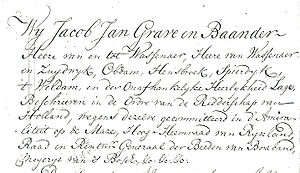 Wy Jacob Jan Grave in Baander
Heere van en tot Wassenaer, Heere van Wassenaer
en Zuydwyk, Obdam, Hensbroek, Spierdyk,
't Weldam, en der Onafhankelyke Heerlykheid Lage,
Beschreven in de Ordre van de Ridderschap van
Holland, wegens dezelve gecommitteerd in d'Amira-
liteit op de Maze, Hoog-Heemraad van Rynland,
Raad en Rentmr Generaal der Beeden van Braband,
Meyerye van 's Bosch, &c. &c. &c.